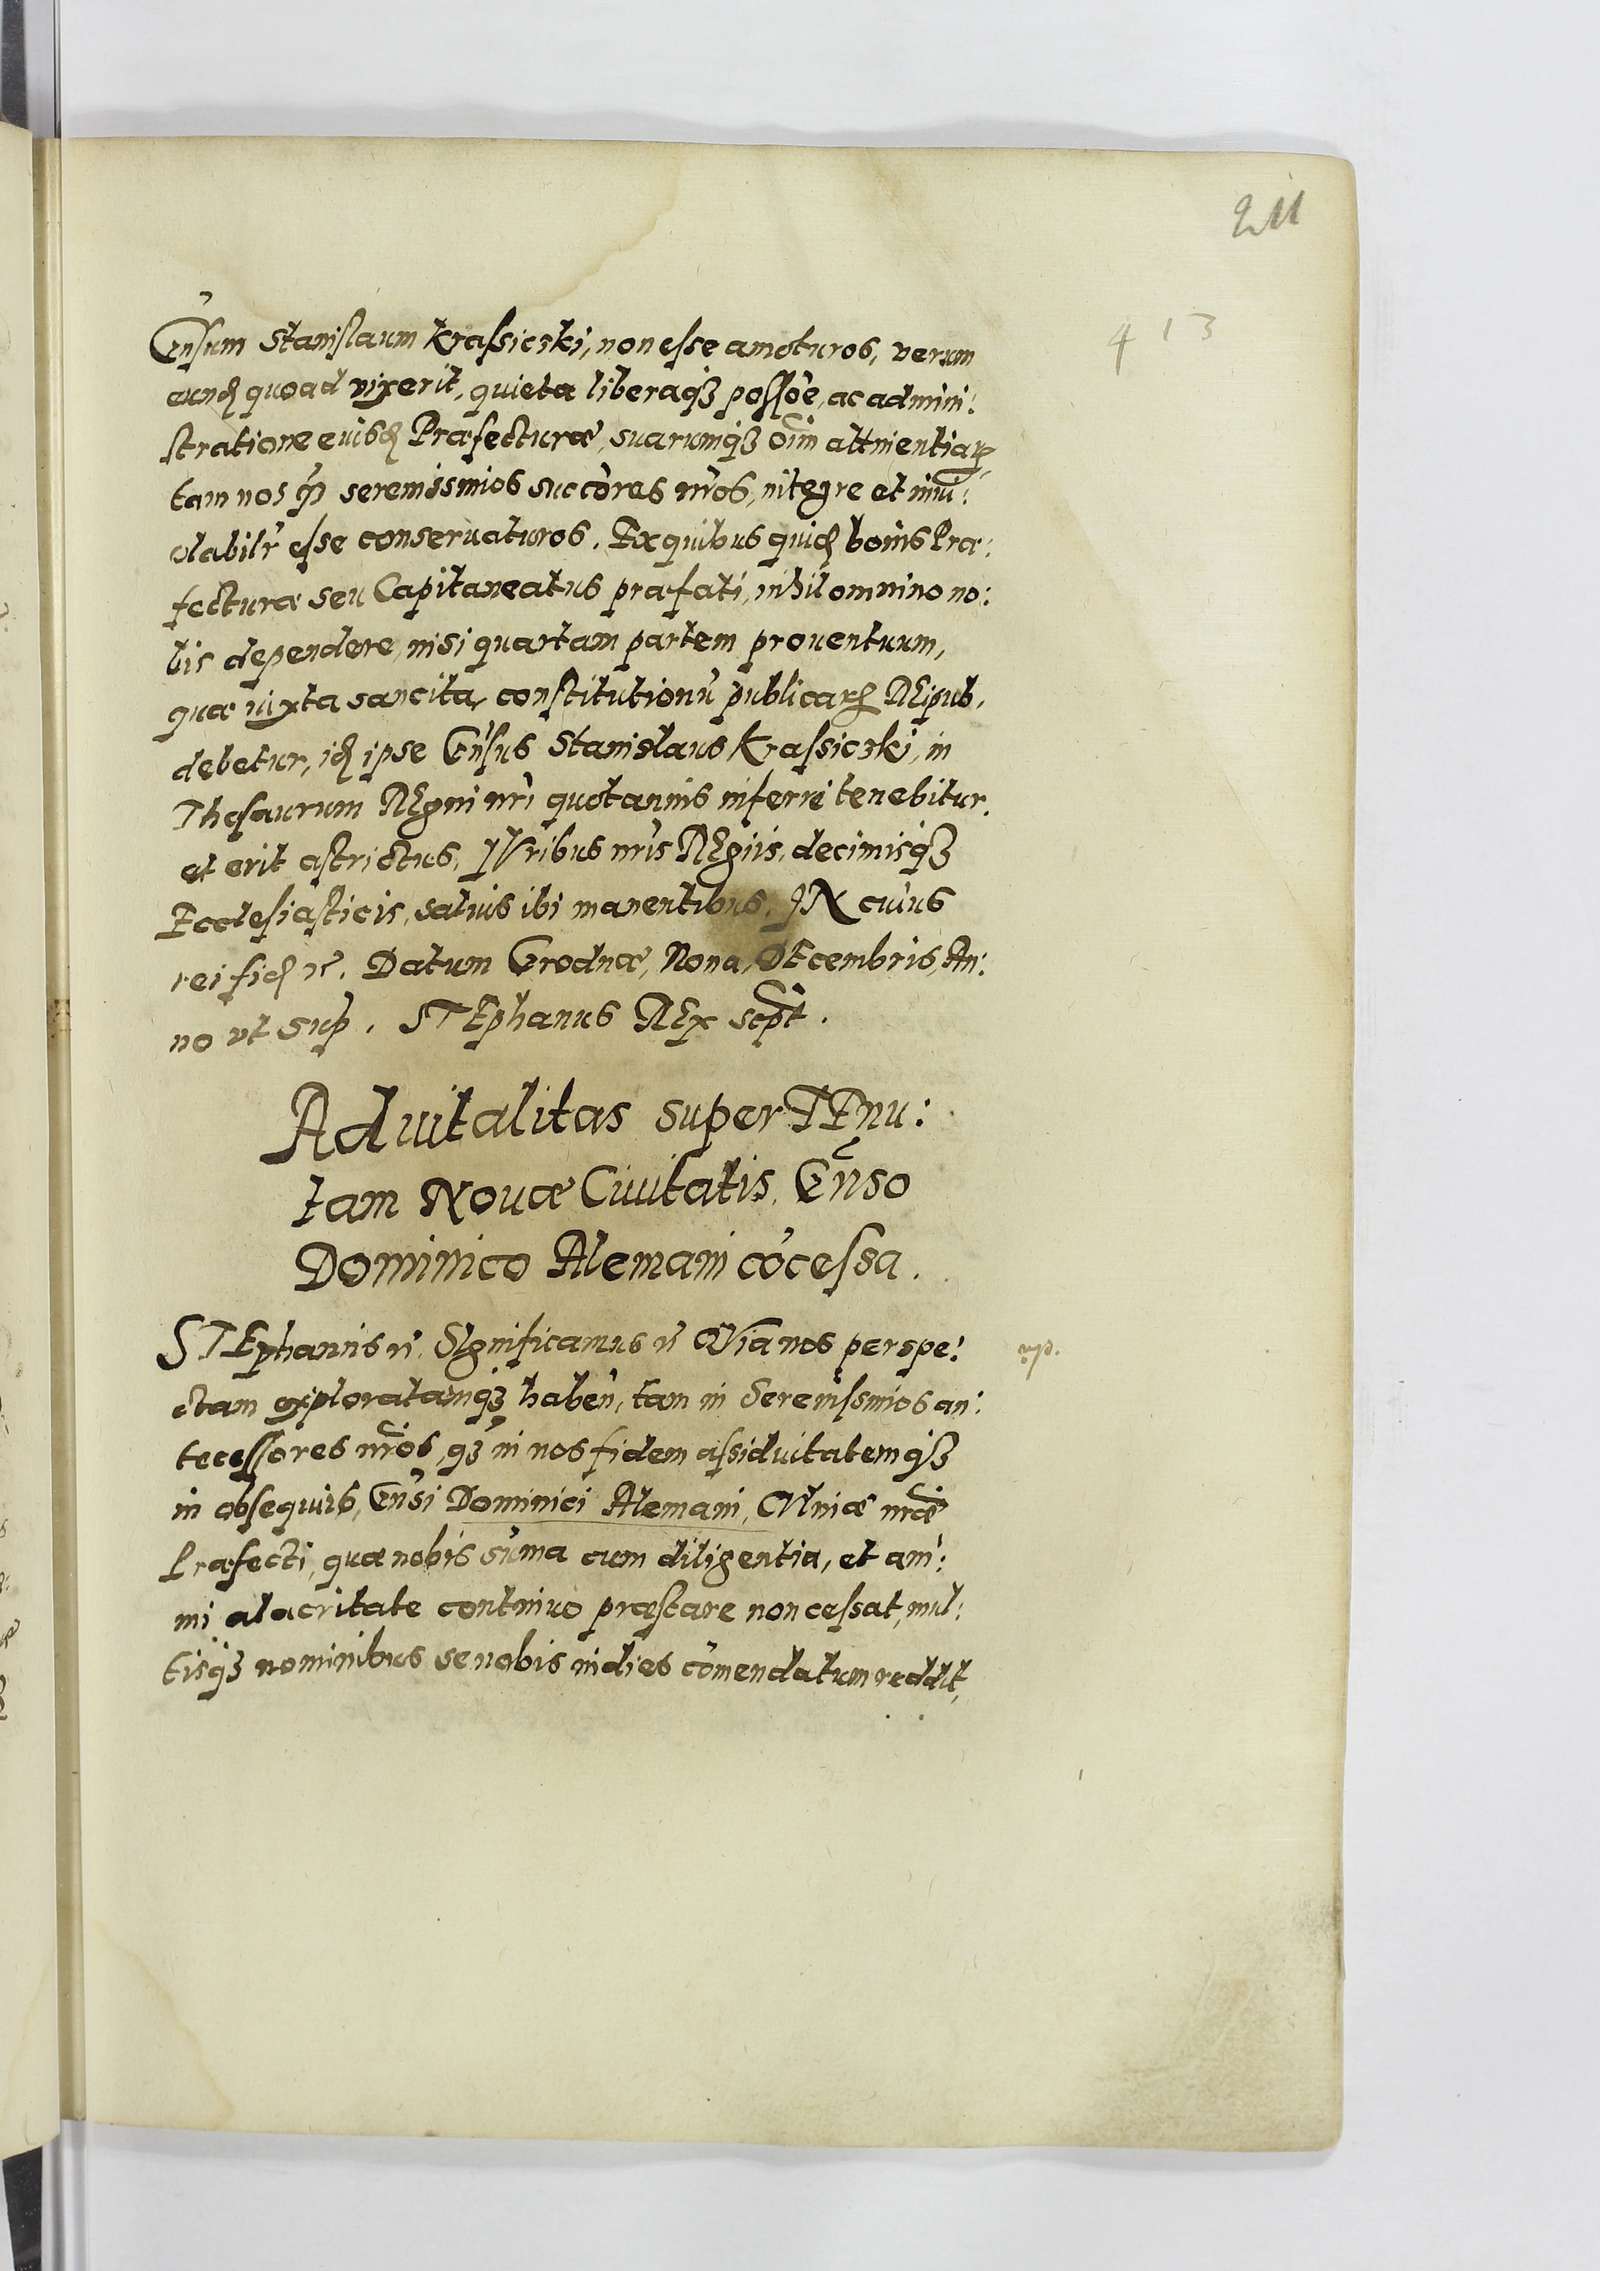 211
413
Gn̄sum Stanislaum Krassicski, non esse amoturos, verum
eund quoad vixerit, quieta liberaqȝ possōe, ac admini:
stratione euisd Præfecturæ, suarumqȝ oīm attinentiaꝝ,
tam nos qm̄ serenissmios succōres nr̄os, integre et inui:
olabilr̄ esse conseruaturos. Ex quibus quid bonis Præ:
fecturæ seu Capitaneatus præfati, nihil omnino no:
bis dependere, nisi quartam partem prouentuum,
quæ iuxta sancita constitutionū publicaꝝ REipub.
debetur, id ipse Gn̄sus Stanislaus Krassicski, in
Thesaurum REgni nr̄i quotannis inferre tenebitur.
et erit astrictus, IVribus nr̄is REgiis, decimisqȝ
Ecclesiasticis, saluis ibi manentibus. IN cuius
rei fid rc. Datum Grodnæ, Nona, DEcembris, An:
no vt sup. STEphanus REx scpt̄.
Aduitalitas super TEnu:
tam Nouæ Ciuitatis, Gn̄so
Dominico Alemani cōcessa.
STEphanus rc. SIgnificamus rc QVia nos perspe:
ctam exploratamqȝ habēn, tam in Serenissmios an:
tecessores nr̄os, qȝ in nos fidem assiduitatemqȝ
in obsequiis, Gn̄si Dominici Alemani, CVlinæ nr̄æ
Præfecti, quæ nobis sūma cum diligentia, et ani:
mi alacritate continuo præstare non cessat, mul:
tisqȝ nominibus se nobis indies cōmendatum reddit,